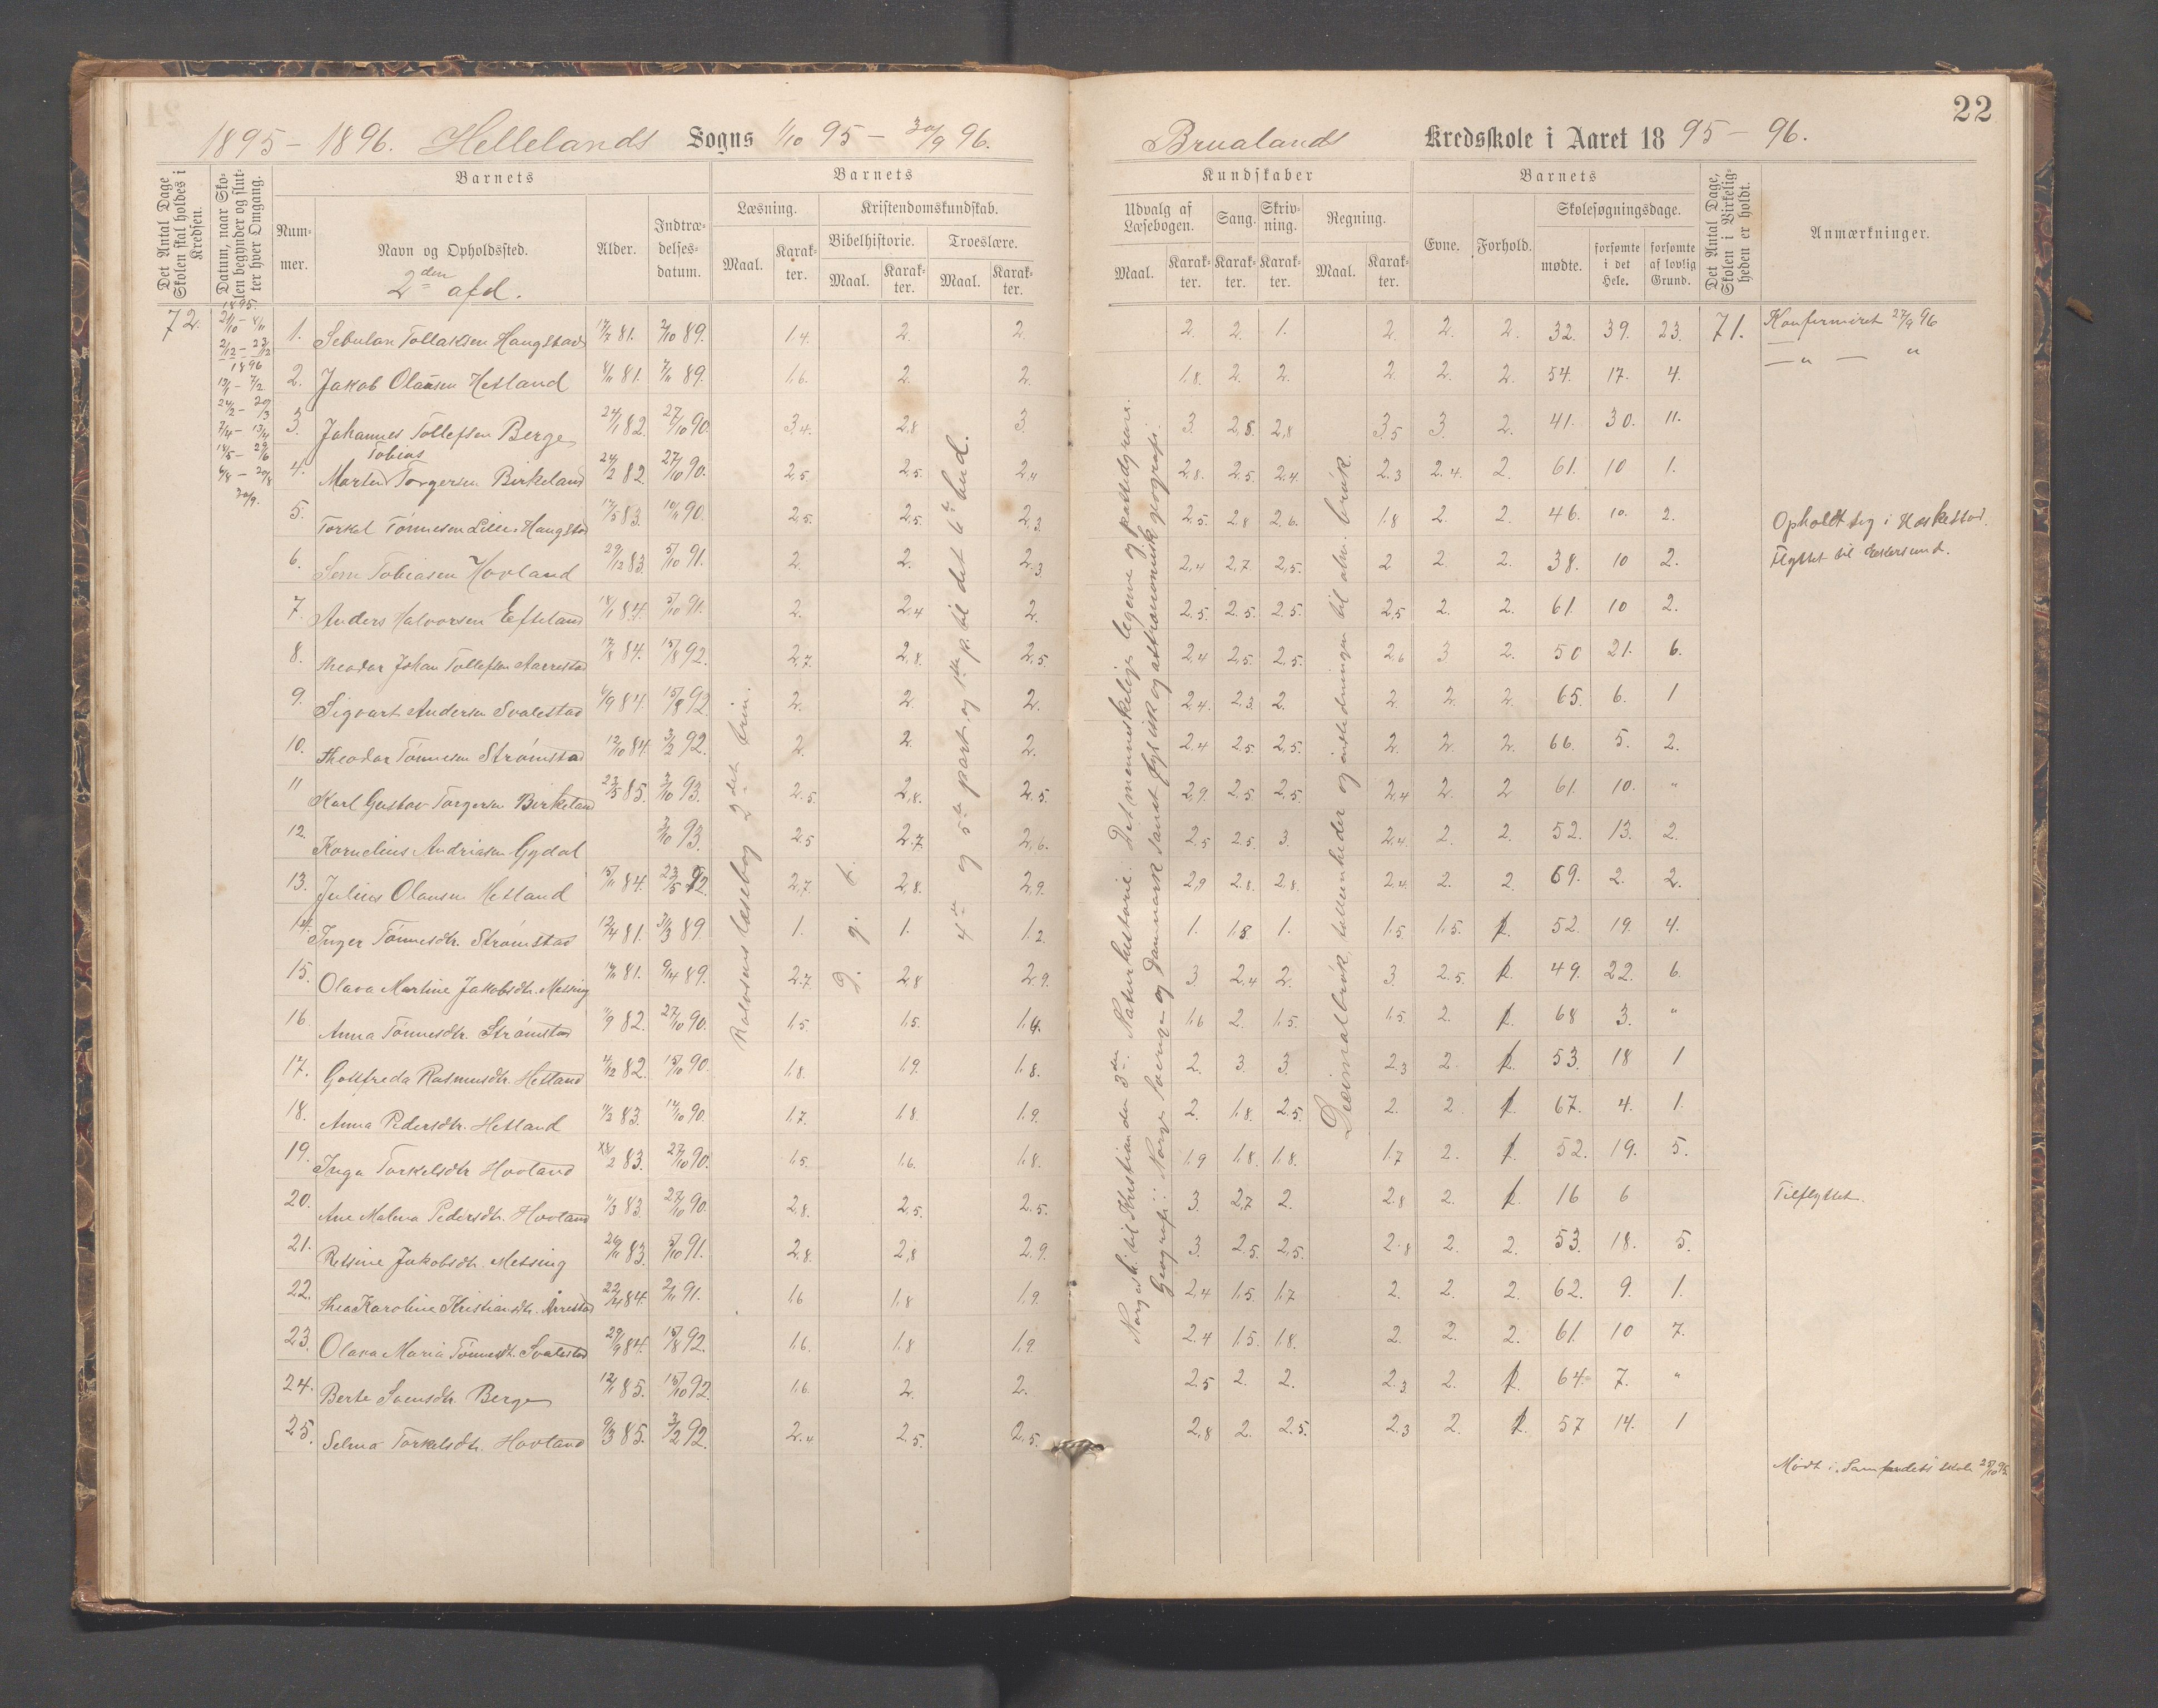 22
1895 – 1896. Hellelands Sogns 1/10 95 – 30/9 96.
Brualands Kredsskole i Aaret 1895 – 96.
Det Antal Dage Skolen skal holdes i Kredsen.
Datum, naar Skolen begynder og slutter hver Omgang.
Barnets
Barnets
Kundskaber
Barnets
Nummer.
Navn og Opholdssted.
2den afd.
Alder.
Indtrædelsesdatum.
Læsning.
Maal.
Karakter.
Kristendomskundskab.
Bibelhistorie.
Maal.
Karakter.
Troeslære.
Maal.
Karakter.
Udvalg af Læsebogen.
Maal.
Karakter.
Sang.
Karakter.
Skrivning.
Karakter.
Regning.
Maal.
Karakter.
Evne.
Forhold.
Skolesøgningsdage.
mødte.
forsømte i det Hele.
forsømte af lovlig Grund.
Det Antal Dage, Skolen i Virkeligheden er holdt.
Anmærkninger.
72.
1895.
1896
71.
1. Sebulon Tollaksen Haugstad 81. 2/10 89. 1.4. 2. 2. 2. 2. 1. 2. 2. 2. 32. 39. 23. Konfirmeret 27/9 96
2. Jakob Olausen Hetland 81. 89. 1.6. 2. 2. 1.8. 2. 2. 2. 2. 2. 54. 17. 4. — " — "
3. Johannes Tollefsen Berge 24/1 82. 27/10 90. 3.4. 2.8 3. 3. 2.8. 2.8 3.5 3. 2. 41. 30. 11.
4. Morten Tobias Torgersen Birkeland 24/2 82. 27/10 90. 2.5 2.5. 2.4 2.8. 2.5. 2.4. 2.3 2.4. 2. 61. 10 1.
5. Torkel Tönnesen Lille-Haugstad 17/5 83. 90. 2.5. 2.5. 2.3. 2.5. 2.8 2.6. 1.8 2. 2. 46. 10. 2. Opholdt sig i Heskestad.
6. Sem Tobiasen Hovland 29/12 83. 5/10 91. 2. 2. 2.3. 2.4 2.7. 2.5. 2 2. 2. 38. 10 2. Flyttet til Ekersund.
7. Anders Halvorsen Efteland 18/1 84. 5/10 91. 2. 2.4 2. 2.5. 2.5. 2.5. 2.5 2. 2. 61. 10 2.
8. Theodor Johan Tollefsen Aarrestad 84. 15/8 92. 2.7. 2.8. 2.5. 2.4 2.5. 2.5. 2.6 3 2. 50 21. 6.
9. Sigvart Andersen Svalestad 6/9 84. 15/8 92. 2. 2. 2. 2.4. 2.3. 2. 2. 2. 2. 65. 6. 1
10. Theodor Tönnesen Strömstad 12/10 84. 3/2 92. 2. 2. 2. 2.4 2.5 2.5. 2. 2. 2. 66. 5. 2.
11 Karl Gustav Torgersen Birkeland 23/5 85. 3/10 93. 2.5. 2.8. 2.5. 2.9. 2.5. 2.5. 2.4 2. 2 61. 10. "
12. Kornelius Andreasen Gydal 3/10 93. 2.5 2.7. 2.6. 2.5 2.5. 3. 2.4. 2. 2. 52. 13. 2.
13. Julius Olausen Hetland 15/11 84. 23/5 92. 2.7. 2.8. 2.9. 2.9 2.8. 2.8. 2.4. 2. 2. 69. 2. 2.
14. Inger Tönnesdtr. Strömstad 12/4 81. 31/3 89. 1. 1. 1.2. 1. 1.8 1. 1.5 1.5. 1. 52. 19. 4.
15. Olava Martine Jakobsdtr. Messing 81. 9/4 89. 2.7. 2.8 2.9. 3. 2.4 2. 3. 2.5. 1. 49. 22. 6.
16. Anna Tönnesdtr. Strömstad 82. 27/10 90. 1.5. 1.5. 1.4. 1.6 2. 1.5. 1.5 2. 1. 68 3. "
17. Gotfreda Rasmusdtr. Hetland 82. 15/10 90. 1.8. 1.9. 1.8. 2. 3. 3. 2.3 2. 1. 53. 18 1
18. Anna Pedersdtr. Hetland 83. 90. 1.7. 1.8. 1.9. 2. 1.8. 2.5. 2. 2. 1. 67. 4. 1.
19. Inga Torkelsdtr Hovland 83. 27/10 90. 1.5. 1.6. 1.8. 1.9 1.8. 1.8. 1.7 2. 1. 52. 19. 5.
20. Ane Malena Pedersdtr. Hovland 11/3 83. 27/10 90. 2.8. 2.5. 2.5. 3. 2.7 2. 2.8 2. 1. 16 6 Tilflyttet.
21. Retsine Jakobsdtr. Messing 83. 5/10 91. 2.8. 2.8 2.9. 3. 2.5. 2.5. 2.8 2. 2. 53. 18. 5.
22. Thea Karoline Kristiansdtr. Årrestad 22/4 84. 91. 1.6 1.8 1.9. 2.4 1.5. 1.7 2. 2. 2. 62. 9. 1.
23. Olava Maria Tönnesdt. Svalestad 29/9 84. 15/8 92. 1.6. 1.8 1.9. 2.4 1.5. 1.8. 2. 2. 2. 61. 10 7.
24. Berte Svensdtr. Berge 12/1 85. 15/10 92. 1.6. 2. 2. 2.5 2. 2. 2.3 2. 1. 64. 7. "
25. Selma Torkelsdtr. Hovland 9/3 85. 3/2 92. 2.4 2.5. 2.5. 2.8 2. 2.5. 2.3 2. 1. 57 14. 1
Rolvsens læsebog 2det trin.
4de og 5te part. og 1ste p. til det 6te bud.
Norgesh. til Kristian den 3die. Naturhistorie: Det menneskelige legeme og pattedyrene.
Geografi: Norge, Sverige og Danmark samt fysisk og astronomisk geografi.
Decimalbrök, tallenheder og indledningen til alm. brök.
Mödt i "Samfundets" skole